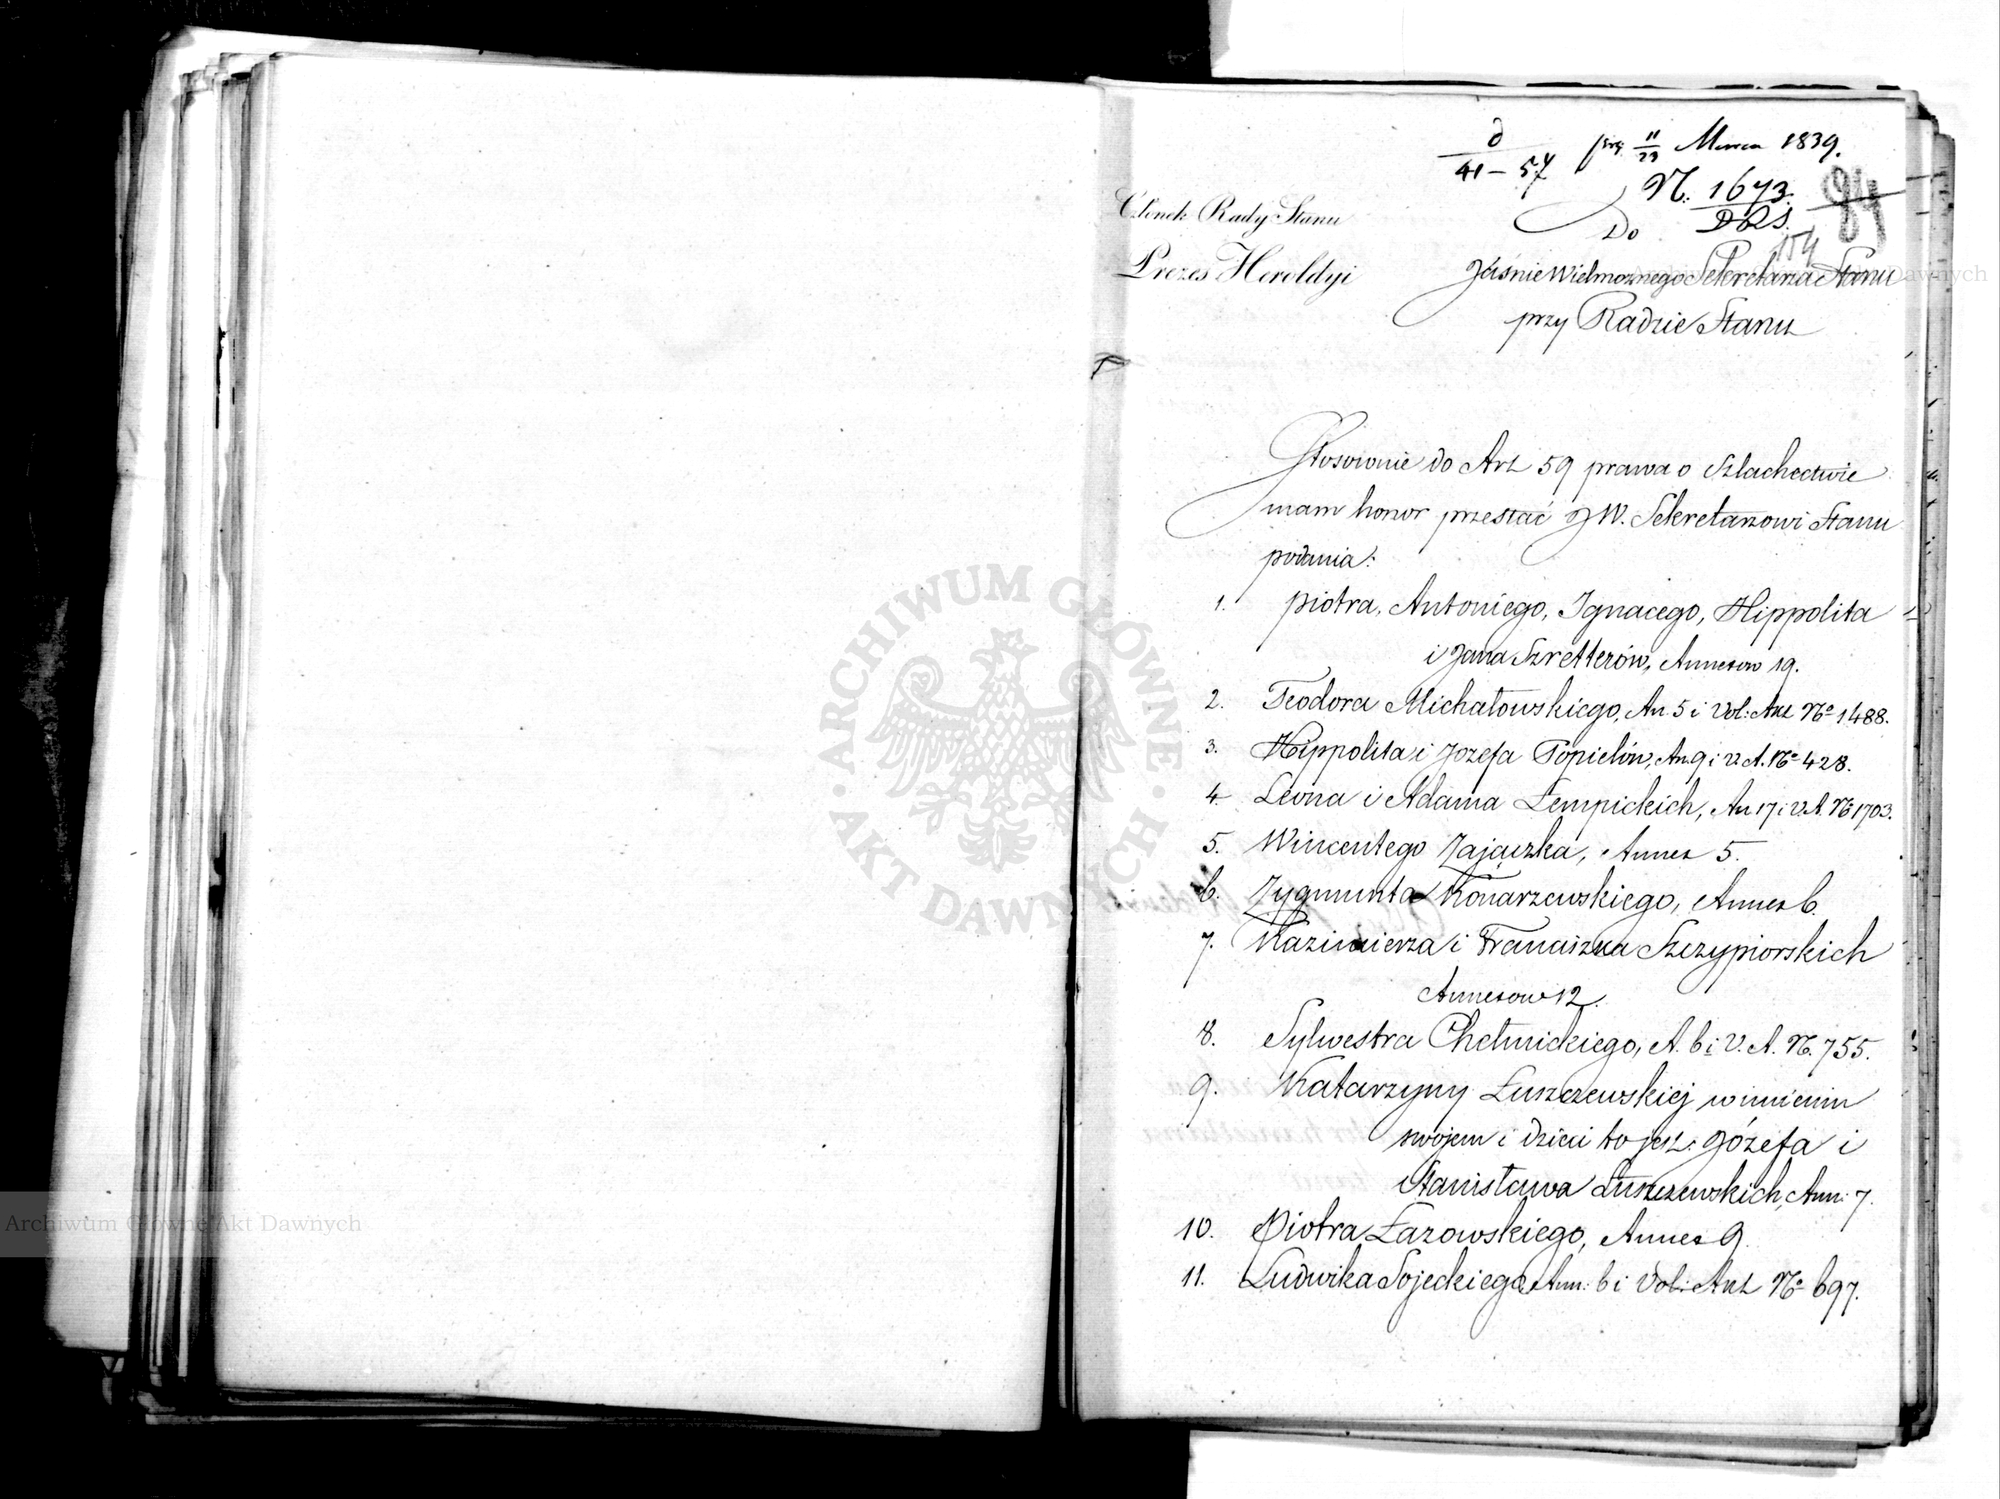 d
41 – 57
11/23 Marca 1839.
N. 1673.
DRS.
84
154
Członek Rady Stanu
Prezes Heroldyi
Do
Jaśnie Wielmożnego Sekretarza Stanu
przy Radzie Stanu
Stosownie do Art 59 prawa o Szlachectwie
mam honor przesłać JW. Sekretarzowi Stanu
podania:
1. Piotra, Antoniego, Ignacego, Hippolita
i Jana Szretterów, Annexow 19.
2. Teodora Michałowskiego, An. 5 i Vol: Akt No 1488.
3. Hippolita i Jozefa Popielów, An. 9 i V. A. No 428.
4. Leona i Adama Łempickich, An 17 i V. A. No 1703.
5. Wincentego Zajączka, Annex 5.
6. Zygmunta Konarzewskiego, Annex 6.
7. Kazimierza i Franciszka Szczypiorskich
Annexow 12.
8. Sylwestra Chełmickiego, A. 6 i V. A. N. 755.
9. Katarzyny Łuszczewskiej w imieniu
swojem i dzieci to jest: Józefa i
Stanisława Łuszczewskich, Ann: 7.
10. Piotra Łazowskiego, Annex 9
11. Ludwika Sojeckiego Ann: 6 i Vol: Akt No 697.
ARCHIWUM GŁÓWNE AKT DAWNYCH
Archiwum Główne Akt Dawnych